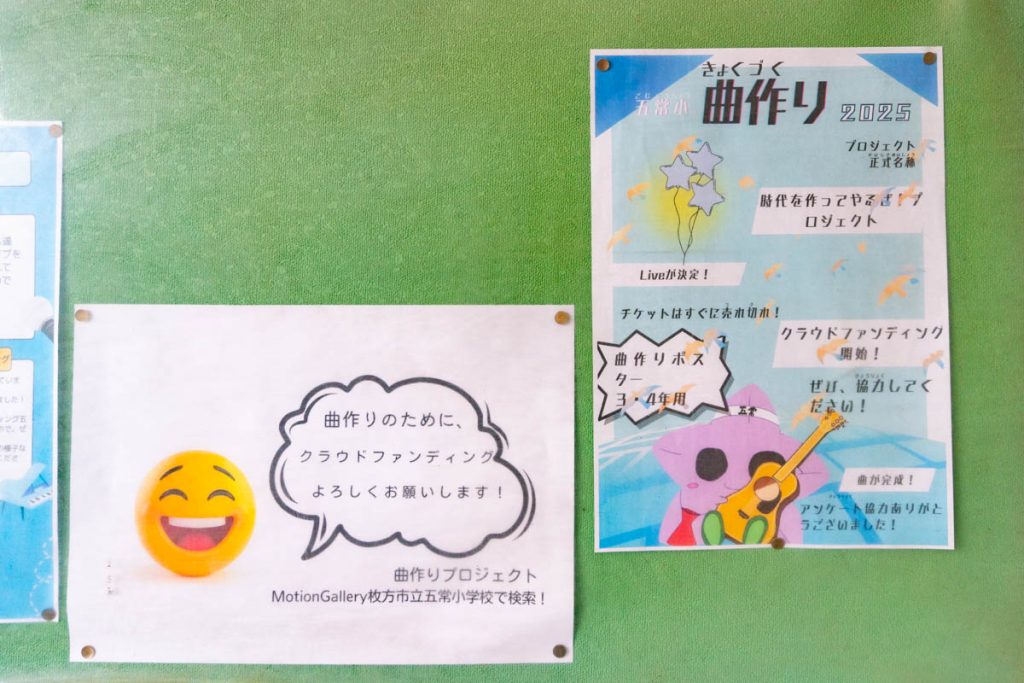 曲作りのために、
クラウドファンディング
よろしくお願いします!
曲作りプロジェクト
MotionGallery枚方市立五常小学校で検索!
きょくづく
五常小 曲作り 2025
プロジェクト
正式名称
時代を作ってやるぜ!プ
ロジェクト
Liveが決定!
チケットはすぐに売れ切れ!
クラウドファンディング
開始!
曲作りポス
ター
3・4年用
ぜひ、協力してく
ださい!
五常
曲が完成!
アンケート協力ありがと
うございました!